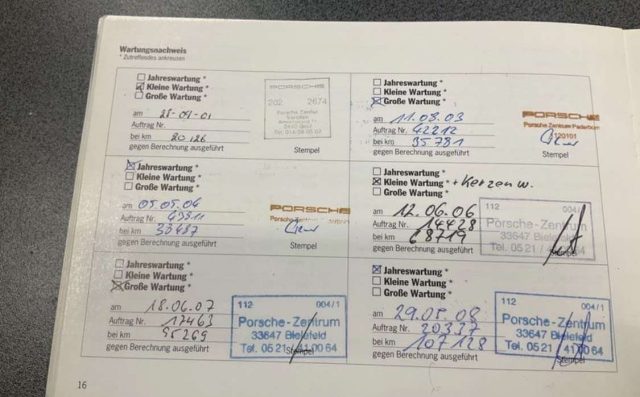 Wartungsnachweis
* Zutreffendes ankreuzen
Jahreswartung *
Kleine Wartung *
Große Wartung *
am 28-09-01
Auftrag Nr.
bei km 20.126
gegen Berechnung ausgeführt
PORSCHE
202 2674
Porsche Center
Stempel
Jahreswartung *
Kleine Wartung *
Große Wartung *
am 11.08.03
Auftrag Nr. 42212
bei km 35781
gegen Berechnung ausgeführt
PORSCHE
Porsche-Zentrum Paderborn
Stempel
Jahreswartung *
Kleine Wartung *
Große Wartung *
am 05.05.04
Auftrag Nr. 49811
bei km 38487
gegen Berechnung ausgeführt
PORSCHE
Porsche-Zentrum
Stempel
Jahreswartung *
Kleine Wartung * + Kerzen w.
Große Wartung *
am 12.06.06
Auftrag Nr. 14428
bei km 68719
gegen Berechnung ausgeführt
112 004/1
Porsche-Zentrum
33647 Bielefeld
Tel. 05 21 /
Stempel
Jahreswartung *
Kleine Wartung *
Große Wartung *
am 18.06.07
Auftrag Nr. 17463
bei km 95269
gegen Berechnung ausgeführt
112 004/1
Porsche-Zentrum
33647 Bielefeld
Tel. 05 21 / 41 00 64
Stempel
Jahreswartung *
Kleine Wartung *
Große Wartung *
am 29.05.08
Auftrag Nr. 20337
bei km 107128
gegen Berechnung ausgeführt
112 004/1
Porsche-Zentrum
33647 Bielefeld
Tel. 05 21 / 41 00 64
Stempel
16